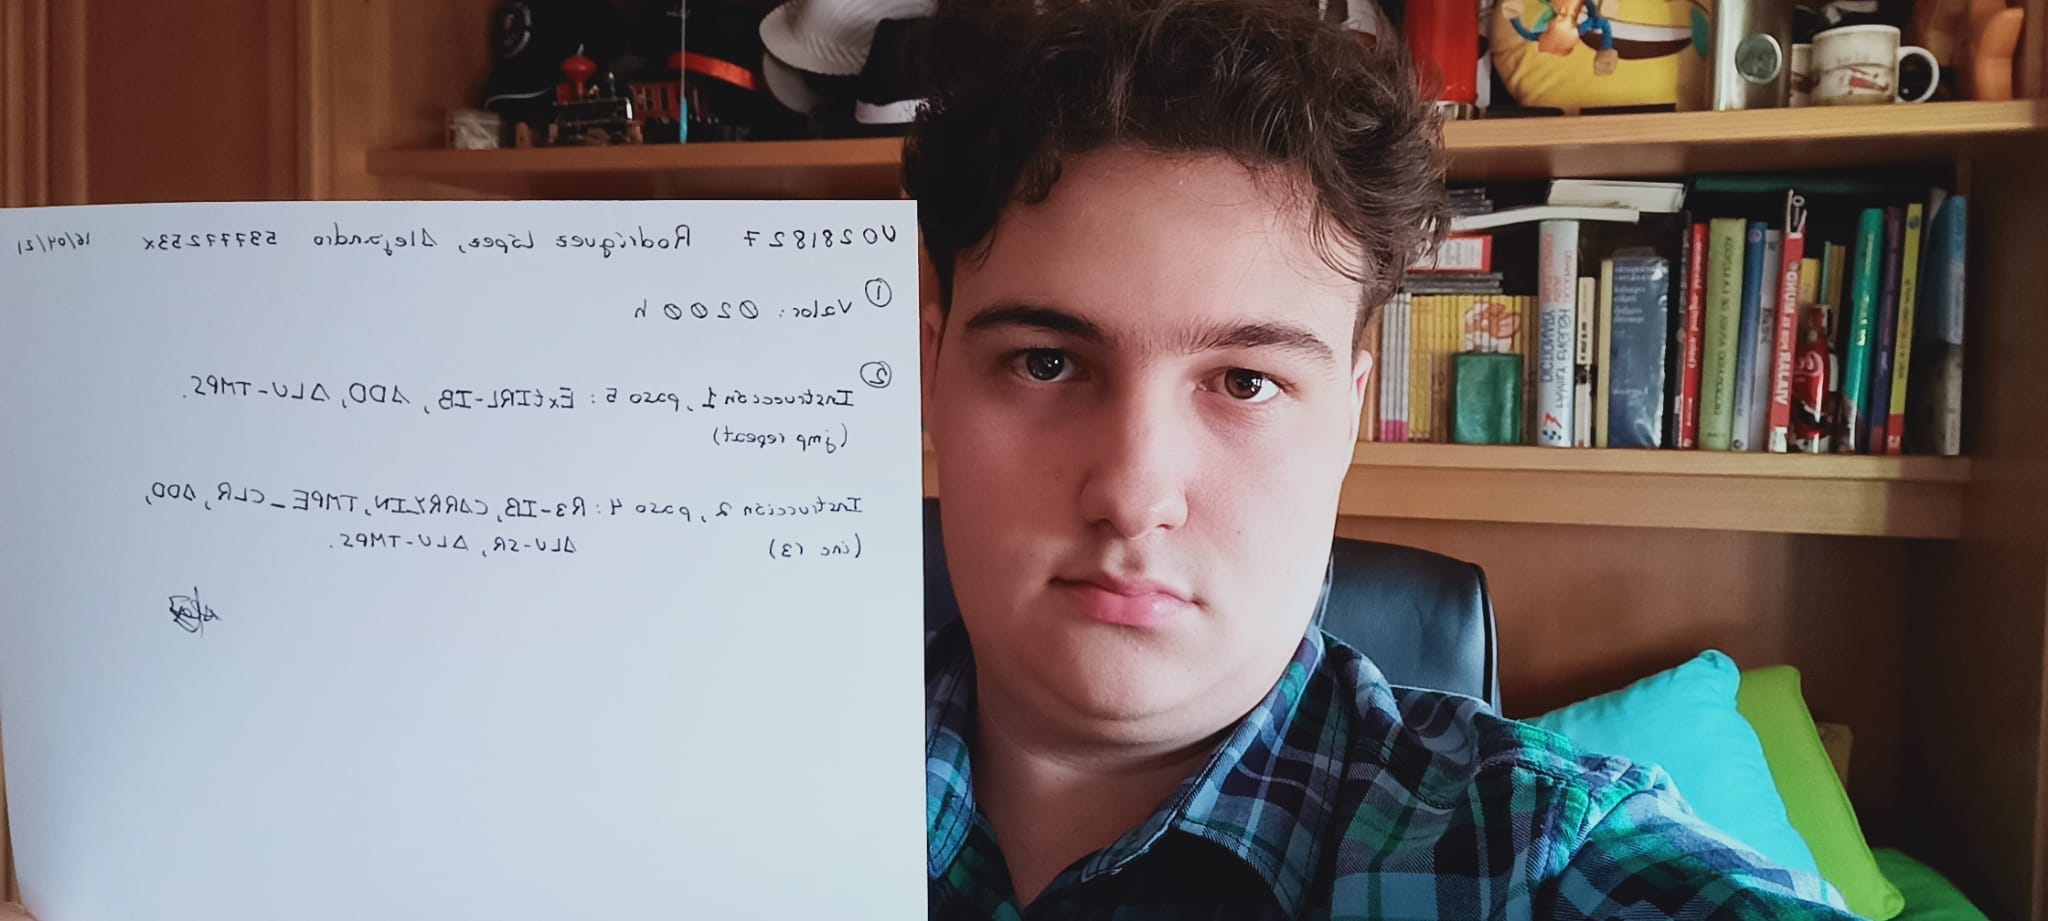 UO281827 Rodríguez López, Alejandro 53777253X 16/04/21
① Valor: 0200 h
② Instrucción 1, paso 5: ExtIRL-IB, ADD, ALU-TMPS.
(jmp repeat)
Instrucción 2, paso 4: R3-IB, CARRYIN, TMPE_CLR, ADD,
(inc r3) ALU-SR, ALU-TMPS.